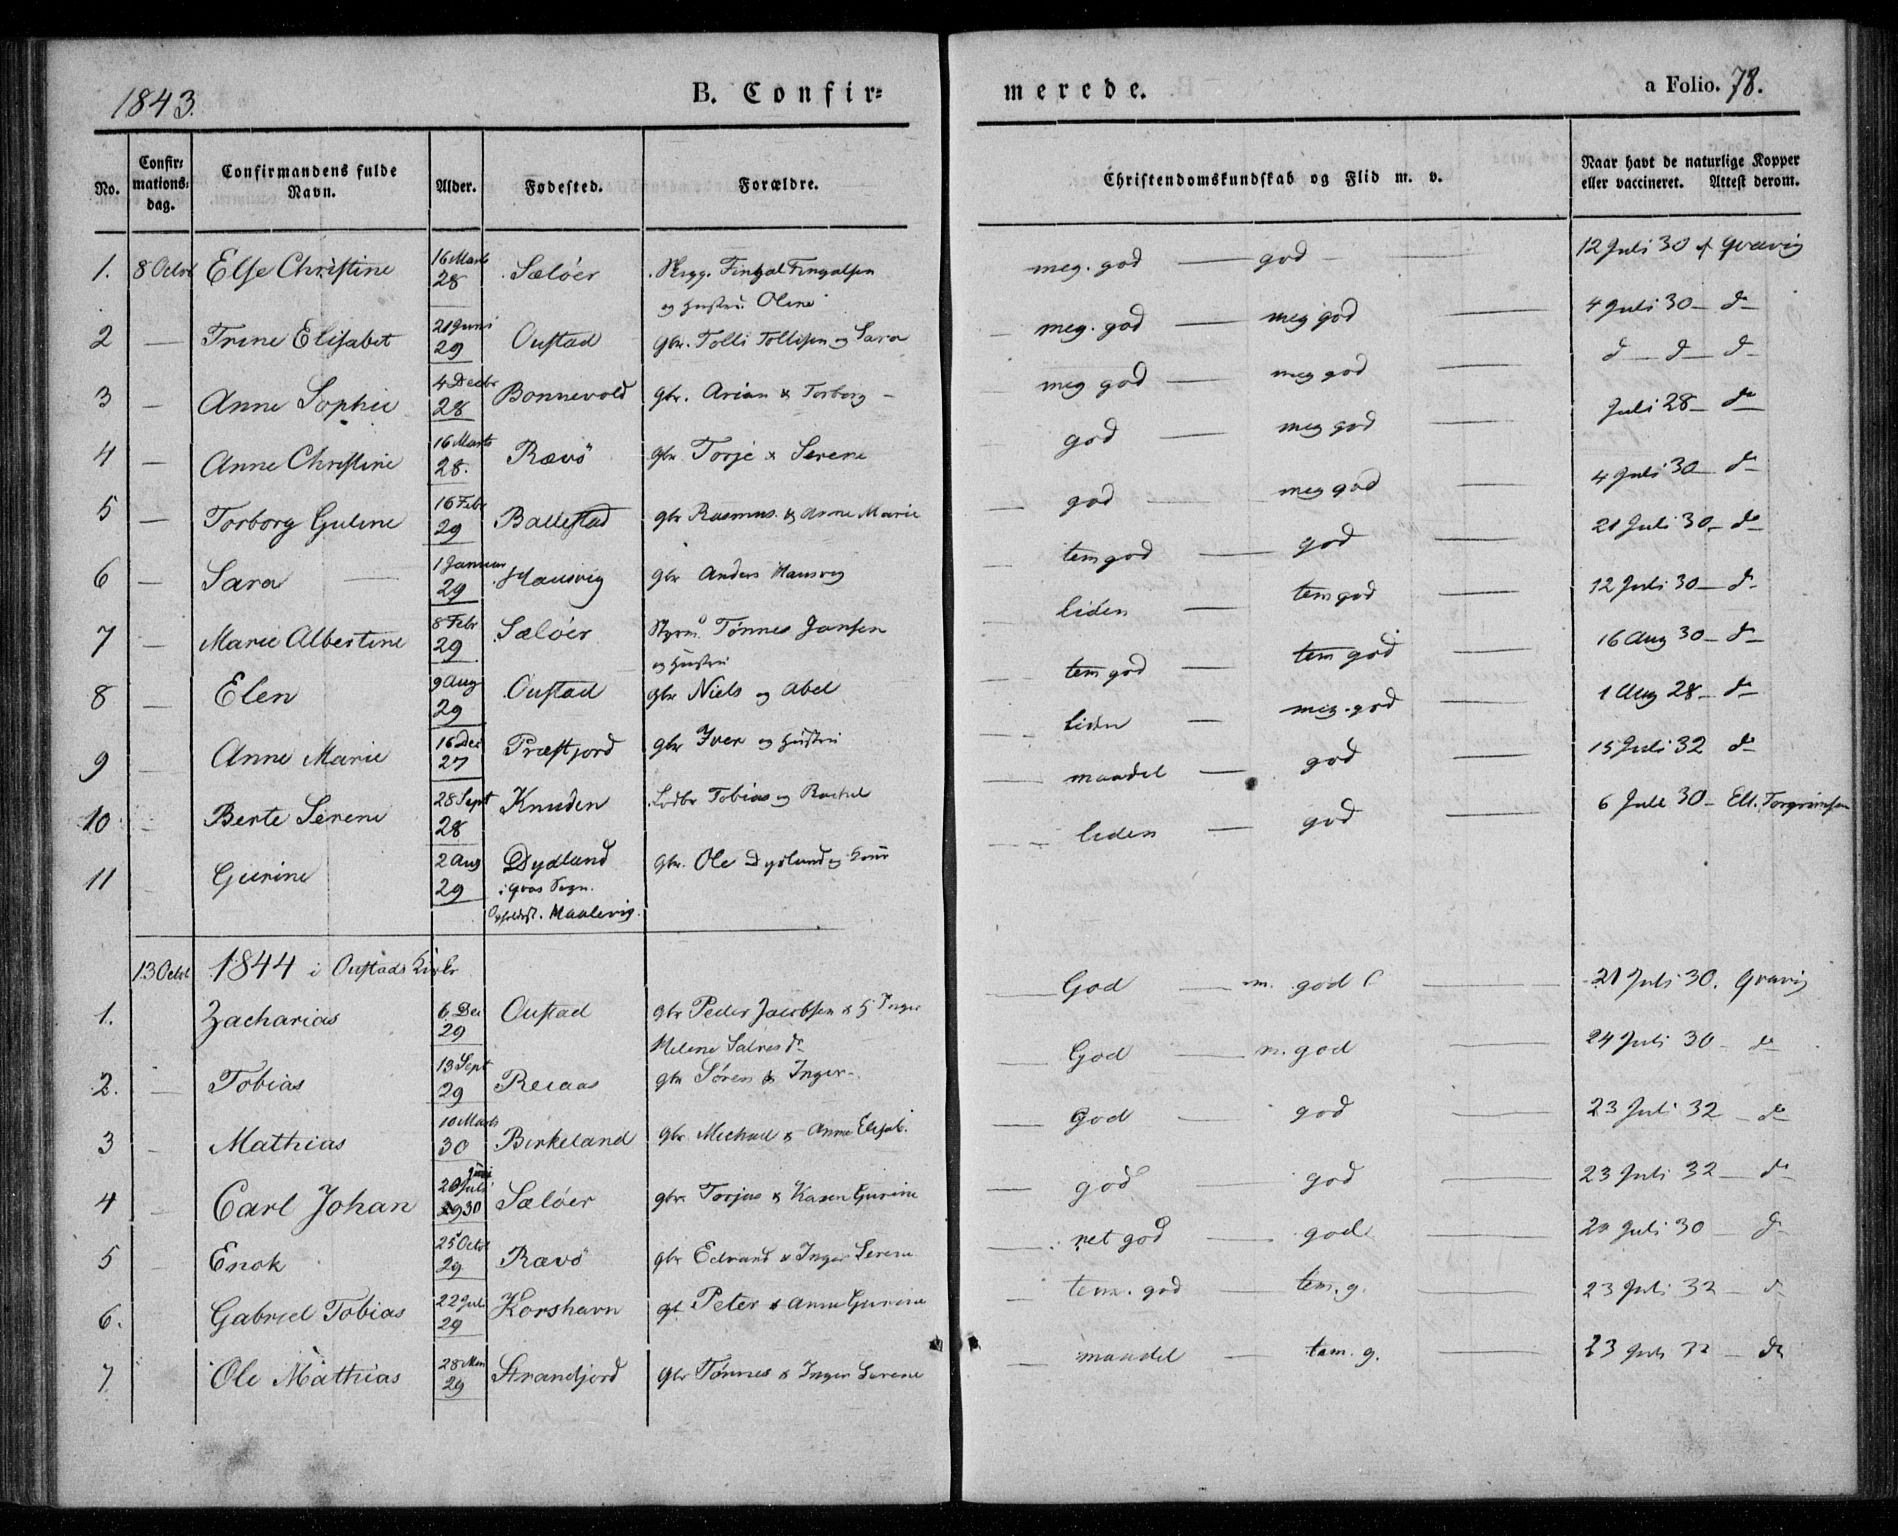 1843.
B. Confir=
merede.
a Folio. 78.
No.
Confir=
mations=
dag.
Confirmandens fulde
Navn.
Alder.
Fødested.
Forældre.
Christendomskundskab og Flid m. v.
Naar havt de naturlige Kopper
eller vaccineret. Attest derom.
1. 8 Octbr Else Christine 16 Marts 28 Sælöer Skpp. Fingal Fingalsen og Hustru Oline meg. god — god — 12 Juli 30 af Gravig
2 — Trine Elisabet 21 Juni 29 Oustad gbr. Tolli Tollisen og Sara — meg. god — meg god — 4 Juli 30 — do
3 — Anne Sophie 4 Decbr 28 Bonnevold gbr. Arian & Torborg — meg god — meg god — d — d — d
4 — Anne Christine 16 Marts 28. Rævö gbr Torje & Serene — god — meg god — Juli 28 — do
5 — Torborg Guline 16 Febr 29 Ballestad gbr Rasmus & Anne Marie — god — meg god — 4 Juli 30 — do
6 — Sara — 1 Januar 29 Hausvig gbr Anders Hausvig tem god — god — 21 Juli 30 — do
7 — Marie Albertine 8 Febr 29 Sælöer Styrm. Tønnes Jansen og Hustru liden — tem god — 12 Juli 30 — do
8 — Elen 9 Aug 29 Oustad gbr Niels og Abel — tem god — tem god — 16 Aug 30 — do
9 — Anne Marie 16 Dec 27 Præstfjord gbr Iver og Hustru — liden — meg. god — 1 Aug 28 — do
10 — Berte Serene 28 Sept 28 Knuden Lodbr Tobias og Rachel — maadel — god — 15 Juli 32 do
11 Gurine 2 Aug 29 Dydland i Qvas Sogn. Opholdst. Maalevig. gbr. Ole Dydland og Kone — liden — god — 6 Juli 30 — Ell. Torgrimsen
13 Octbr 1844 i Oustads Kirke
1. Zacharias 6 Dec 29 Oustad gbr Peder Jacobsen & H Inger Helene Salves dr — God — m. god — 21 Juli 30. Gravig
2. — Tobias 13 Sept 29 Reiaas gbr Sören & Inger — — God — m. god — 24 Juli 30 — do
3 — Mathias 10 Marts 30 Birkeland gbr. Michael & Anne Elisab. — God — god — 23 Juli 32 — do
4 — Carl Johan 20 Juli Juni 29 30 Sælöer gbr Torjus & Karen Gurine — god — god — 23 Juli 32 — do
5 — Enok 25 Octbr 29 Rævö gbr Edvard & Inger Serene — ret god — god — Juli 30 — do
6. Gabriel Tobias 22 Jul 29 Korshavn gb Peter & Anne Gurine — tem. god — tem. g. — 23 Juli 32 — d
7. Ole Mathias 28 29 Strandfjord gbr Tønnes & Inger Serene — maadel — tem. g. — 23 Juli 32 — do